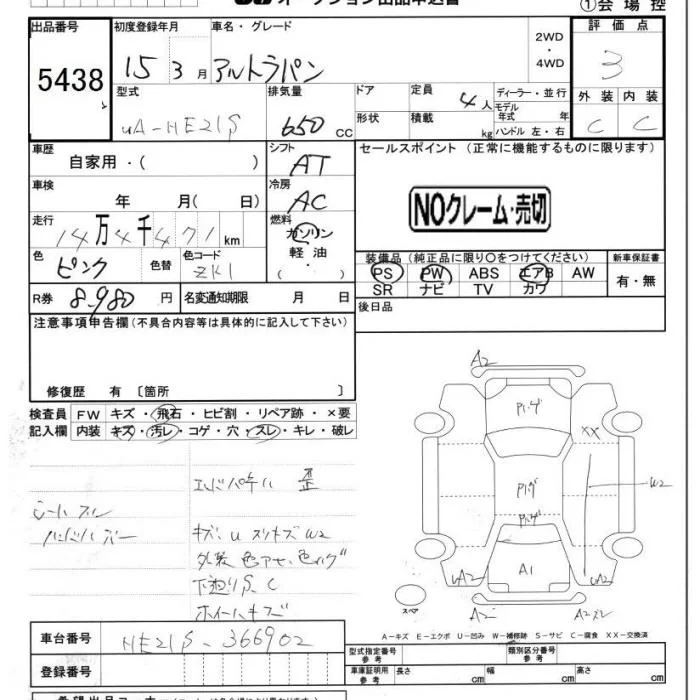 オークション出品申込書
①会場控
出品番号 初度登録年月 車名・グレード 2WD ・ 4WD 評価点
5438 15 3月 アルトラパン 3
型式 排気量 ドア 定員 ディーラー・並行 外装 内装
UA-HE21S 650cc 4人 モデル年式 年 C C
形状 積載 kg ハンドル 左・右
車歴 シフト セールスポイント (正常に機能するものに限ります)
自家用・( ) AT
車検 冷房
年 月( 日) AC NOクレーム・売切
走行 燃料
14万4千471km ガソリン
軽油
色 色替 色コード 装備品(純正品に限り○をつけてください) 新車保証書
ピンク ZK1 PS PW ABS エアB AW 有・無
SR ナビ TV カワ
R券 8,980円 名変通知期限 月 日 後日品
注意事項申告欄(不具合内容等は具体的に記入して下さい)
修復歴 有〔箇所 〕
検査員 FW キズ・飛石・ヒビ割・リペア跡・×要
記入欄 内装 キズ・汚レ・コゲ・穴・スレ・キレ・破レ
A2
Pレゲ
XX
Pレゲ
W2
Pレゲ
A1
UA2 UA2
A2 A2スレ
スペア
シートスレ
歪
キズ U スリキズ W2
外装色アセ、色ハゲ
下廻りS、C
ホイールキズ
A-キズ E-エクボ U-凹み W-補修跡 S-サビ C-腐食 XX-交換済
車台番号 HE21S-366902 型式指定番号 参考 類別区分番号 参考
登録番号 車庫証明用 参考 長さ cm 幅 cm 高さ cm